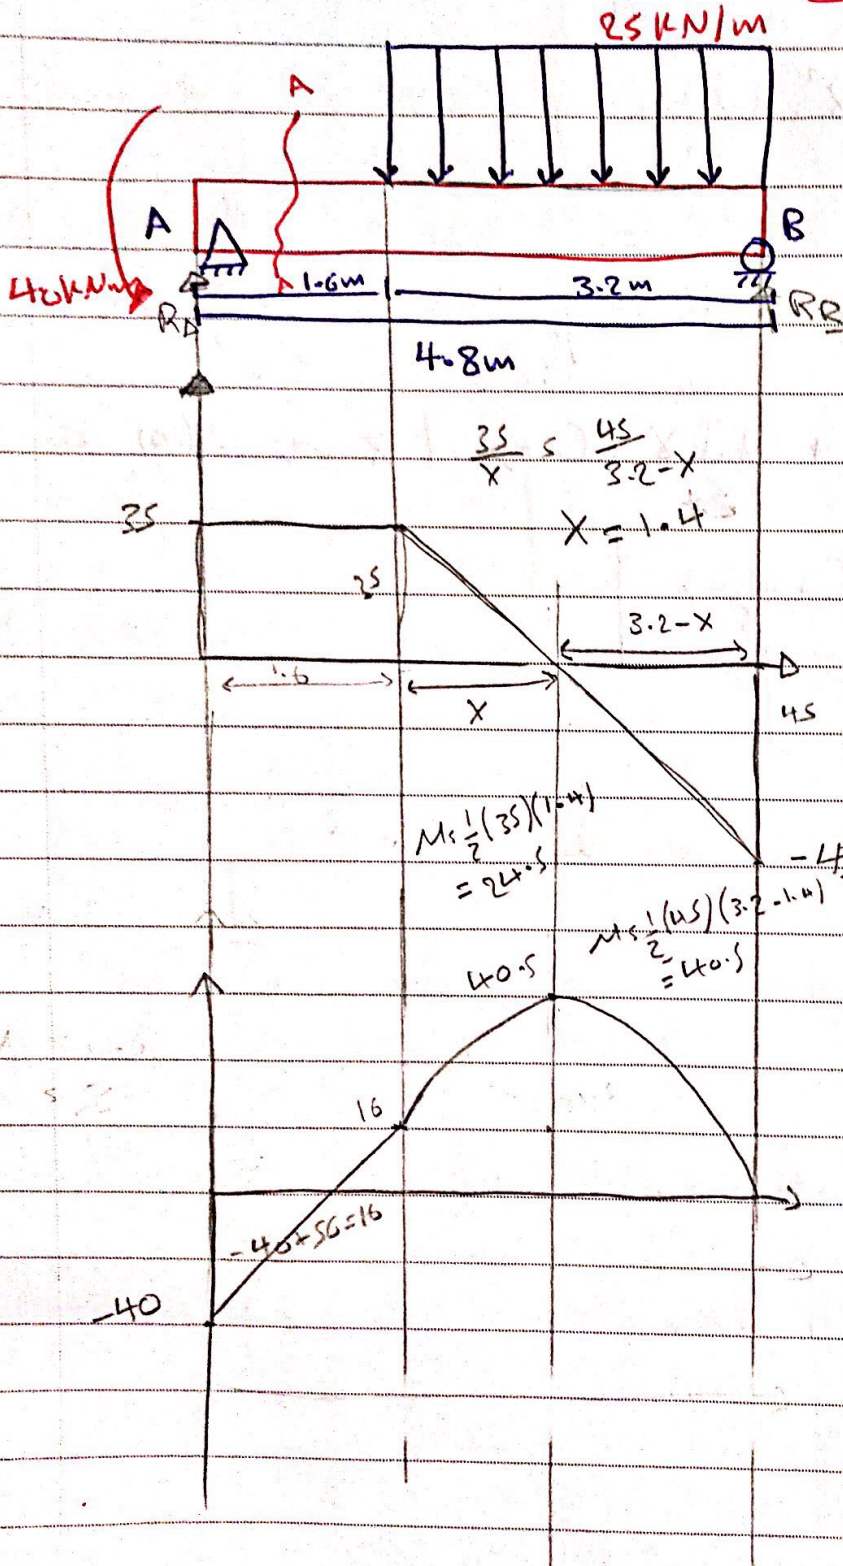 25KN/m
A
A
B
40KN.m
1.6m
3.2m
RA
RB
4.8m
35/x = 45/3.2-x
35
x = 1.4
35
3.2-x
1.6
x
45
M=1/2(35)(1.4)
=24.5
-4
M=1/2(45)(3.2-1.4)
=40.5
40.5
16
-40+56=16
-40